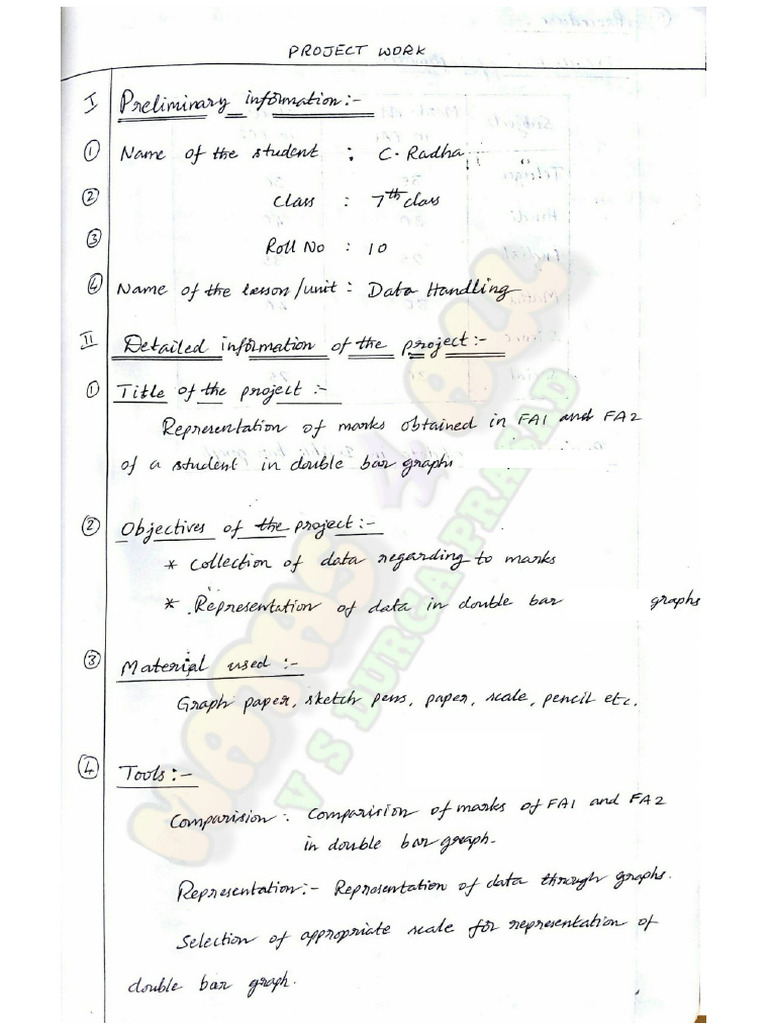 PROJECT WORK
I Preliminary information:-
① Name of the student : C. Radha
② Class : 7th class
③ Roll No : 10
④ Name of the lesson/unit : Data Handling
II Detailed information of the project:-
① Title of the project :-
Representation of marks obtained in FA1 and FA2
of a student in double bar graphs
② Objectives of the project:-
* Collection of data regarding to marks
* Representation of data in double bar graphs
③ Material used :-
Graph paper, sketch pens, paper, scale, pencil etc.
④ Tools:-
Comparision : Comparision of marks of FA1 and FA2
in double bar graph.
Representation:- Representation of data through graphs.
Selection of appropriate scale for representation of
double bar graph.
MATHS 4 ALL
V S DURGA PRASAD